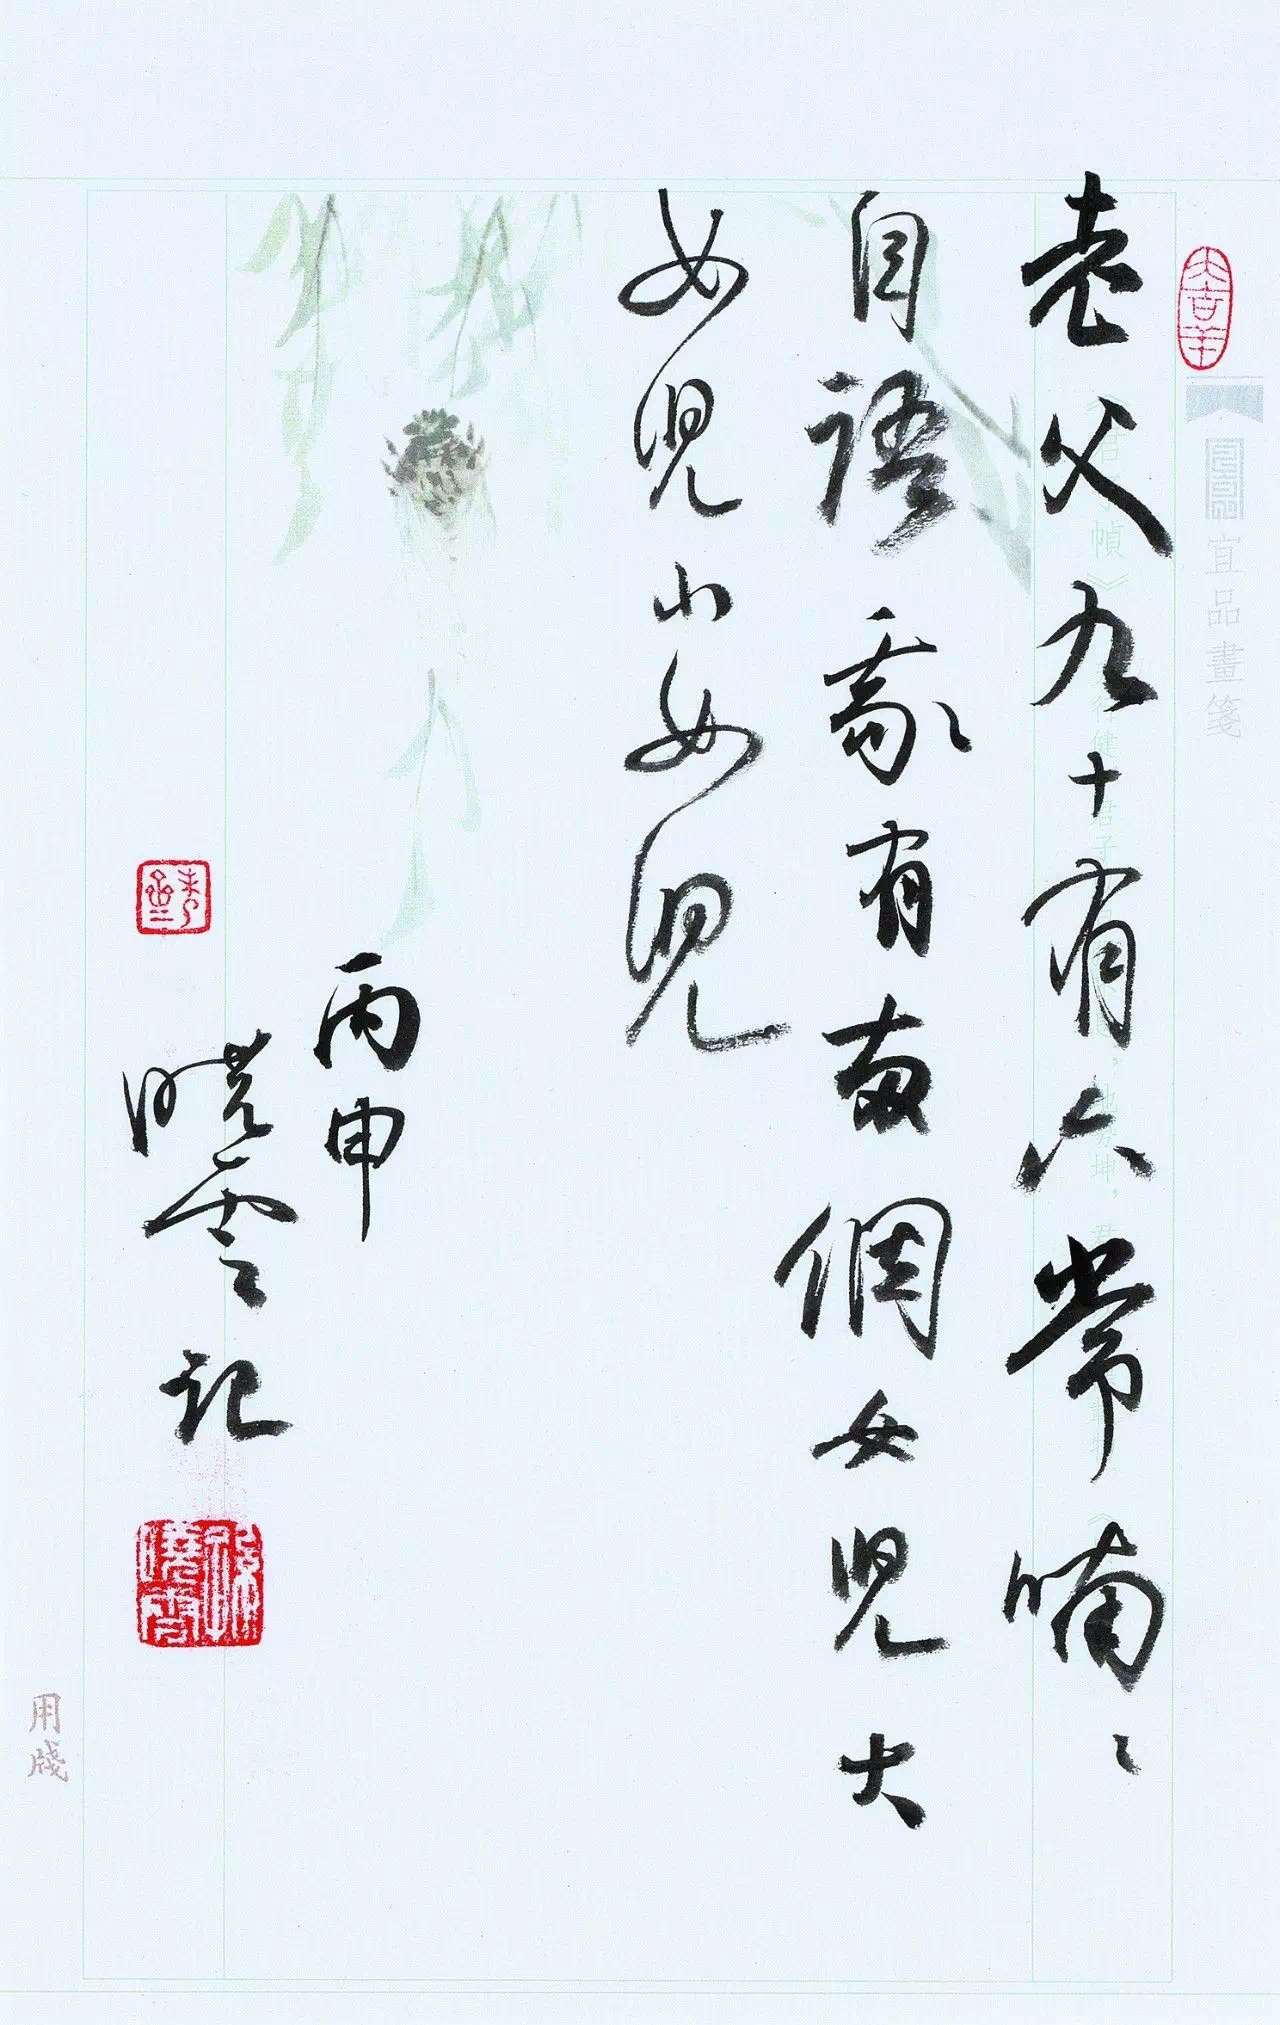 老父九十有六常喃々
自語我有兩個女兒大
女兒小女兒
丙申
曉雲記
大吉羊
宜品畫箋
用牋